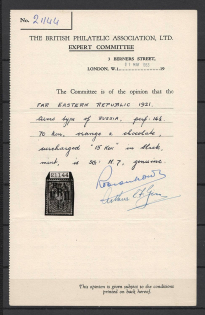 No. 21144
THE BRITISH PHILATELIC ASSOCIATION, LTD.
EXPERT COMMITTEE
3 BERNERS STREET,
LONDON, W.1 19
The Committee is of the opinion that the
FAR EASTERN REPUBLIC 1921.
Arms type of RUSSIA, perf.
70 kop. orange & chocolate,
surcharged "15 Kon" in black,
mint, is SG. N. 7, genuine.
21144
This opinion is given subject to the conditions
printed on back hereof.